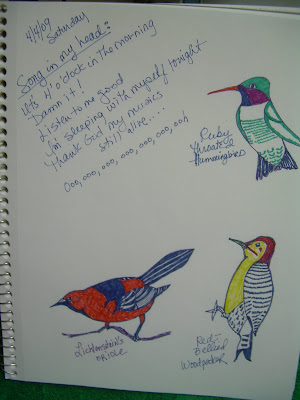 4/4/09
Saturday
Song in my head:
It's 4 o'clock in the morning
Damn it!
Listen to me good
I'm sleeping with myself tonight
Thank God my musics
still alive....
ooo, ooo, ooo, ooo, ooo, ooh
Ruby
Throated
Hummingbird
Lichtenstein's
ORIOLE
Red-
Bellied
Woodpecker